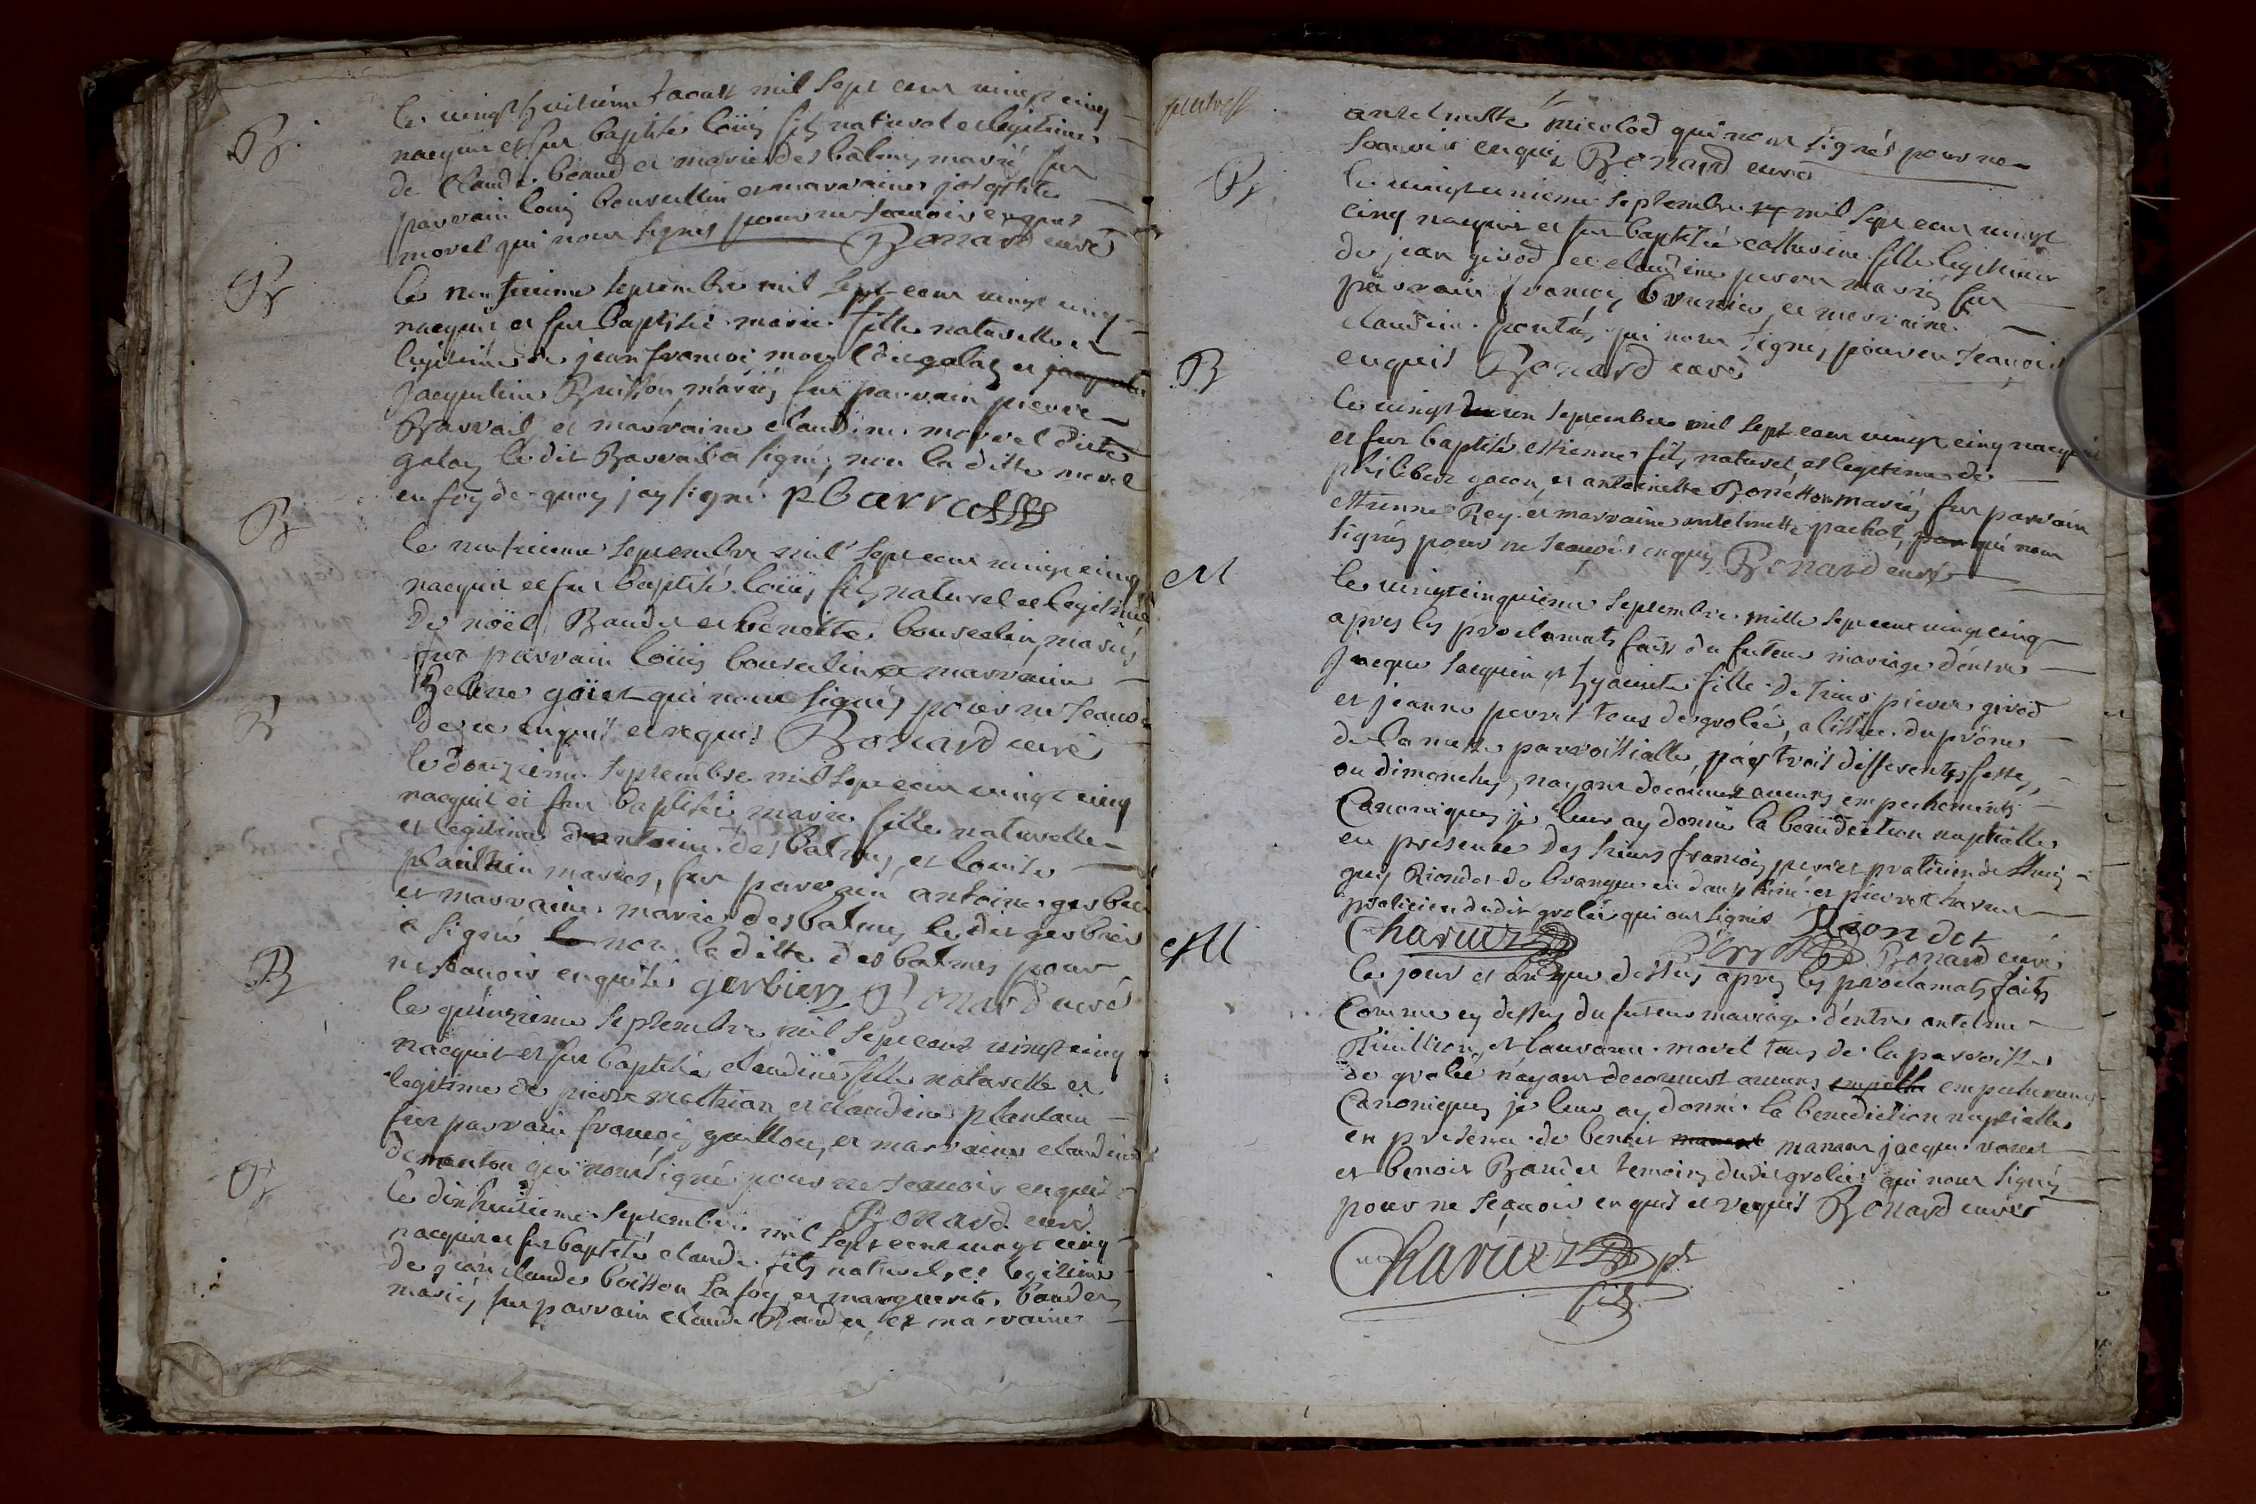 B
le vingt huitieme d'aoust mil sept cent vingt cinq
nacquit et fut baptisé loüis fils naturel et legitime
de Claude béaud et marie des balmes mariés fut
parrain louis bouvellin et marraine josephte
morel qui n'ont signés pour ne scavoir enquis
Bonard curé
B
le neufvieme septembre mil sept cent vingt cinq
nacquit et fut baptisée marie fille naturelle et
legitime de jean francois morel dit galay et
jacqueline Buisson mariés fut parrain pierre
Barral et marraine claudine morel ditte
galay ledit Barral a signé, non la ditte morel
en foy de quoy jay signé pbarral
B
le neufvieme septembre mil sept cent vingt cinq
nacquit et fut baptisé loüis fils naturel et legitime
de noël Baudet et benoitte bouvelin, mariés
fut parrain loüis bouvelin et marraine
Helene goüet qui n'ont signés pour ne scavoir
de ce enquis et requis Bonard curé
B
le douzieme septembre mil sept cent vingt cinq
nacquit et fut baptisée marie fille naturelle
et legitime d'antoine des balmes, et louise
mariés, fut parrain antoine gerbier
et marraine marie des balmes ledit gerbier
a signé non la ditte des balmes pour
ne scavoir enquise gerbier Bonard curé
B
le quinzieme septembre mil sept cent vingt cinq
nacquit et fut baptisée claudine fille naturelle et
legitime de pierre mathian, et claudine plantain
fut parrain françois guillon, et marraine claudine
dementon qui n'ont signé pour ne scavoir enquis
Bonard curé
B
le dixhuitieme septembre mil sept cent vingt cinq
nacquit et fut baptisé claude fils naturel, et legitime
de jean claude boisson lafoy et marguerite baudet
mariés fut parrain claude Baudet, et marraine
antelmette micolod qui n'ont signés pour ne
scavoir enquis Bonard curé
B
le vingtunieme septembre mil sept cent vingt
cinq nacquit et fut baptisée catherine fille legitime
de jean girod et claudine peron mariés fut
parrain françois brunier, et marraine
claudine qui n'ont signés, pour ne scavoir
enquis Bonard curé
B
le vingt un septembre mil sept cent vingt cinq nacquit
et fut baptisé estienne fils naturel et legitime de
philibert gacon, et antoinette mariés fut parrain
estienne Rey et marraine antelmette pachot, qui n'ont
signés pour ne scavoir enquis Bonard curé
M
le vingtcinquieme septembre mille sept cent vingt cinq
apres les proclamats faits du futeur mariage d'entre
jacque jacquin et hyacinte fille de sieur pierre girod
et jeanne perret tous de grolée, a lissue du prône
de la messe parroissialle, par trois differentes festes,
ou dimanches, nayant decouvert aucuns empechements
Canoniques je leur ay donné la benediction nuptialle
en presence des sieurs françois perret praticien de
guy Riondet de brangue en dauphiné et pierre charvet
praticien dudit grolée qui ont signés Riondet
Charvet Perret Bonard curé
M
le jour et an que dessus apres les proclamats faits
Comme cy dessus du futeur mariage d'entre antelme
et laurance morel tous de la parroisse
de grolée nayant decouvert aucuns empechements
Canoniques je leur ay donné la benediction nuptialle
en presence de benoit manant jacque
et benoit Baudet temoins dudit grolée qui n'ont signés
pour ne scavoir enquis et requis Bonard curé
Charvet